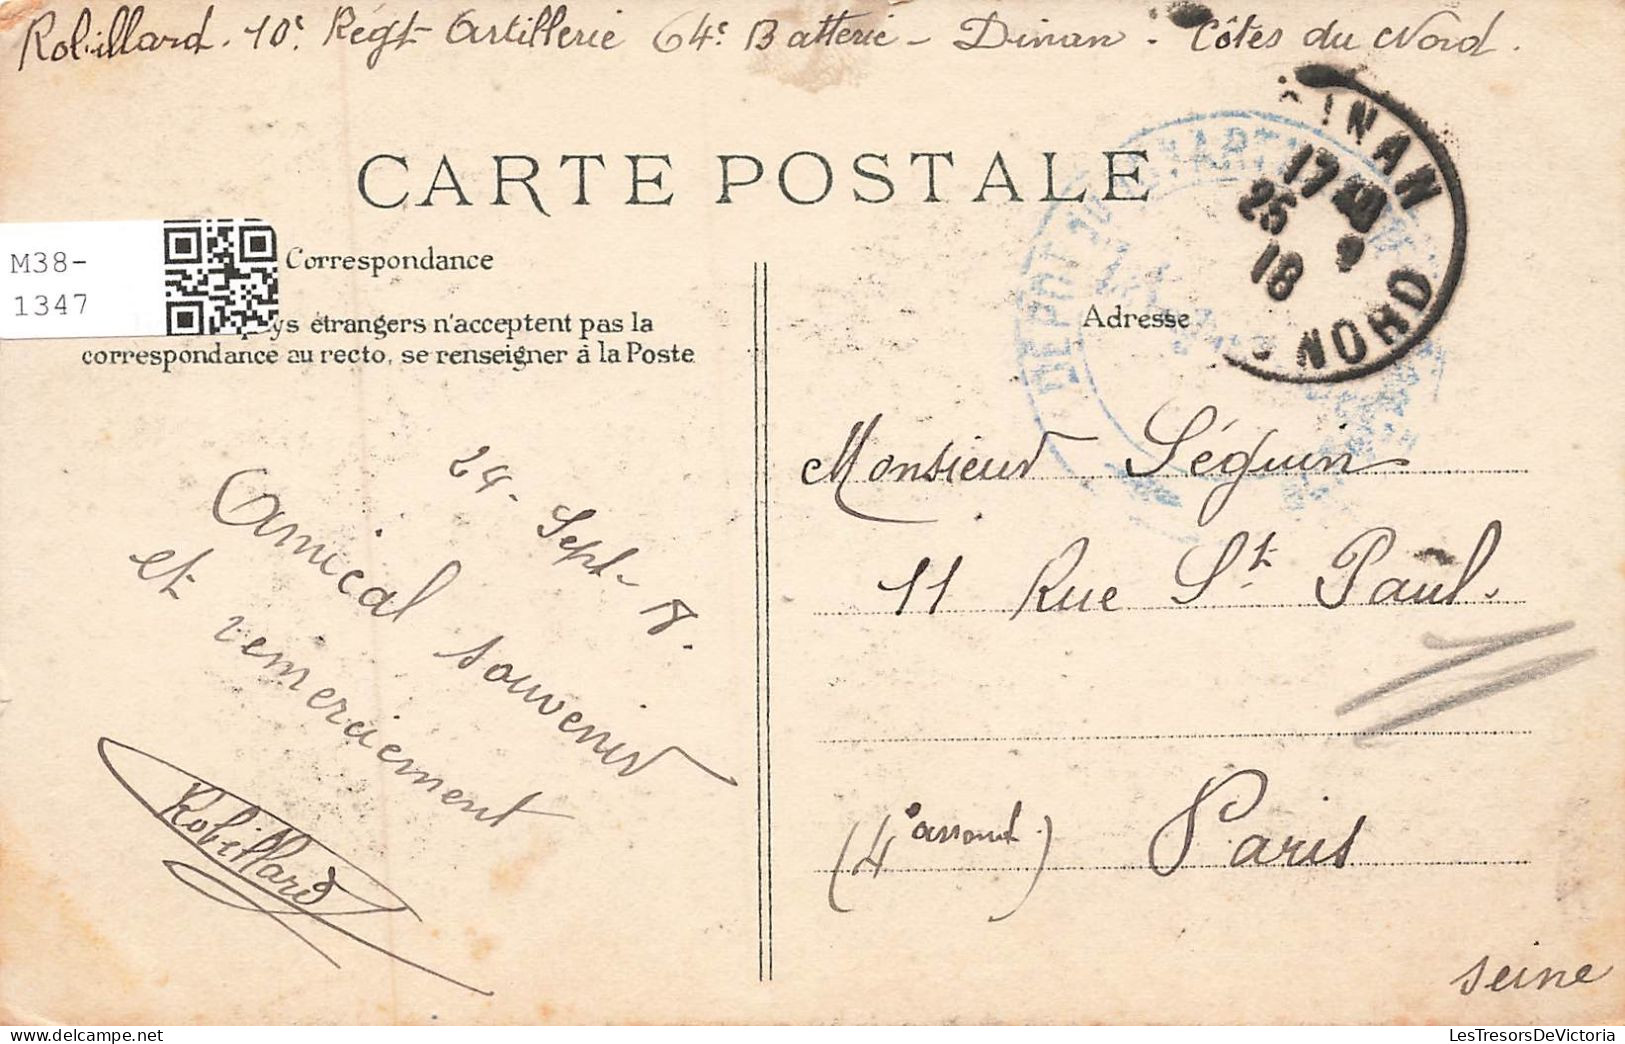 Robillard. 10e Régt Artillerie 64e Batterie - Dinan - Côtes du Nord.
CARTE POSTALE
M38-
1347
Correspondance
ys étrangers n'acceptent pas la
correspondance au recto, se renseigner à la Poste
24 - Sept - 18.
Amical souvenir
et remerciement
Robillard
DINAN
17
25 9
18
NORD
DÉPÔT
ART
Adresse
Monsieur Séguin
11 Rue St Paul.
(4e arrondt.) Paris
Seine
LesTresorsDeVictoria.com